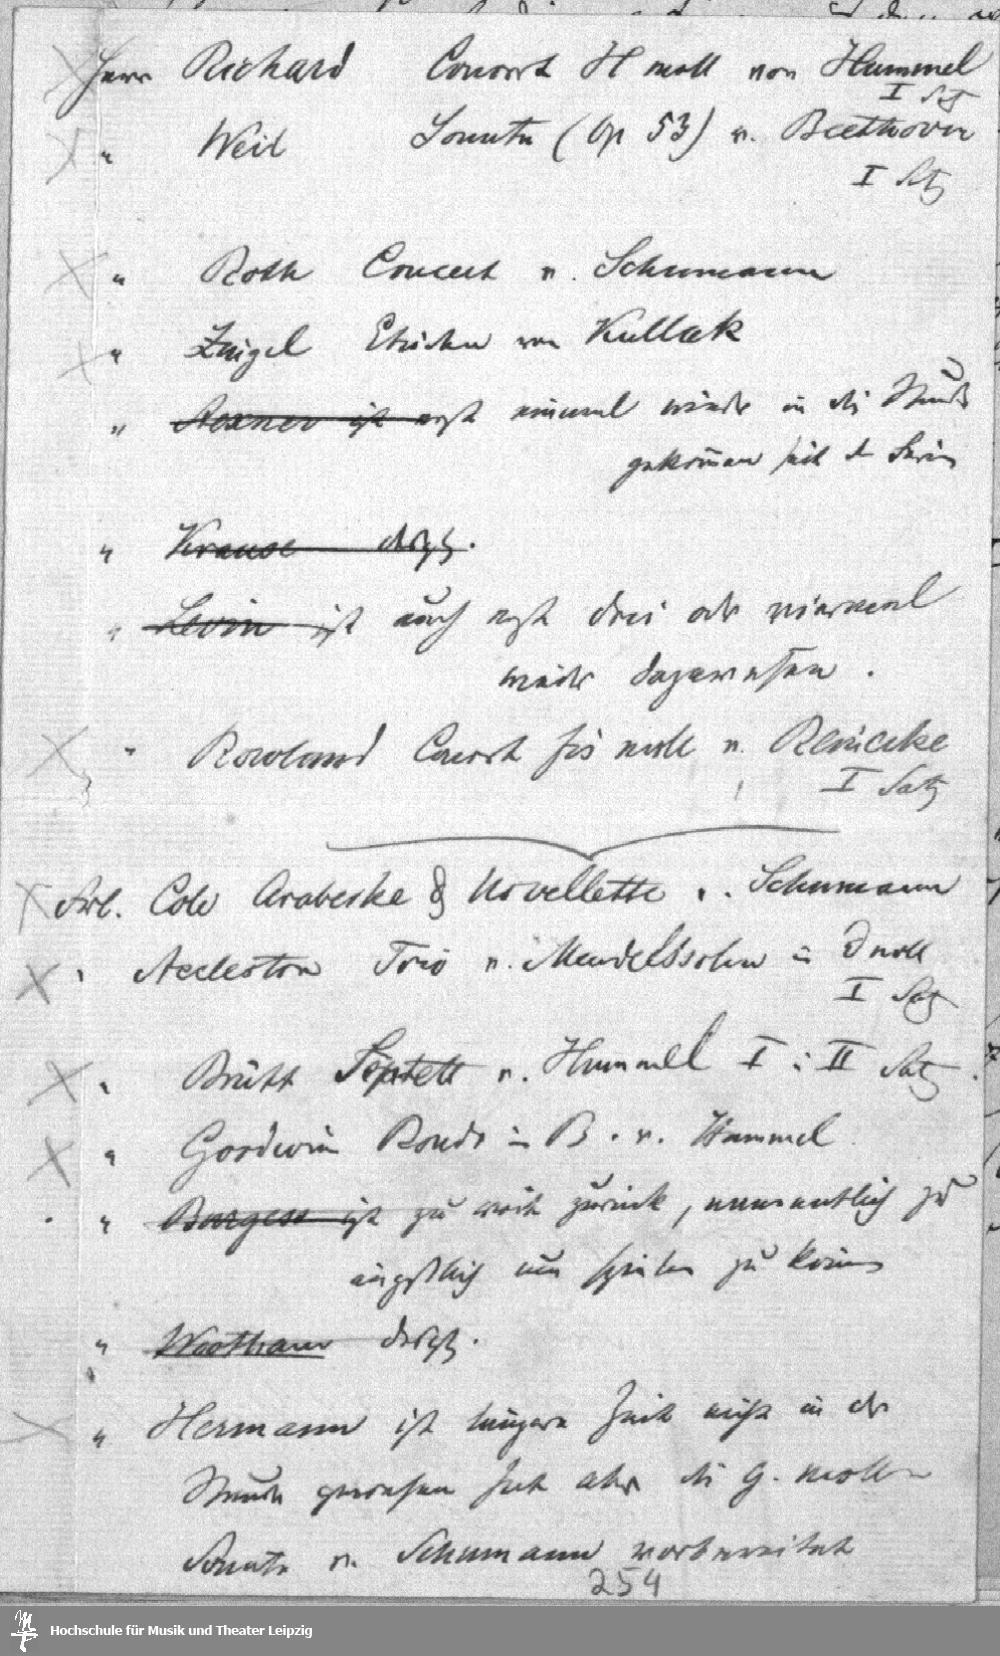 Herr Richard Concert H moll von Hummel
I Satz
" Weil Sonate (Op 53) v. Beethoven
I Satz
" Roth Concert v. Schumann
" Etuden von Kullak
" ist erst einmal wieder in die Stunde
gekom̄en seit den Ferien
" Krause desgl.
" Levin ist auch erst drei oder viermal
wieder dagewesen.
" Rowland Concert fis moll v. Reinecke
I Satz
Frl. Cole Arabeske & Novellette v. Schumann
" Accleston Trio v. Mendelssohn in D moll
I Satz
" Brütt Septett v. Hummel I u. II Satz.
" Goodwin Rondo in B. v. Hummel
" Burgess ist zu weit zurück, namentlich zu
ängstlich um spielen zu können
" desgl.
" Hermann ist längere Zeit nicht in der
Stunde gewesen hat aber die G. moll
Sonate v. Schumann vorbereitet
254
Hochschule für Musik und Theater Leipzig